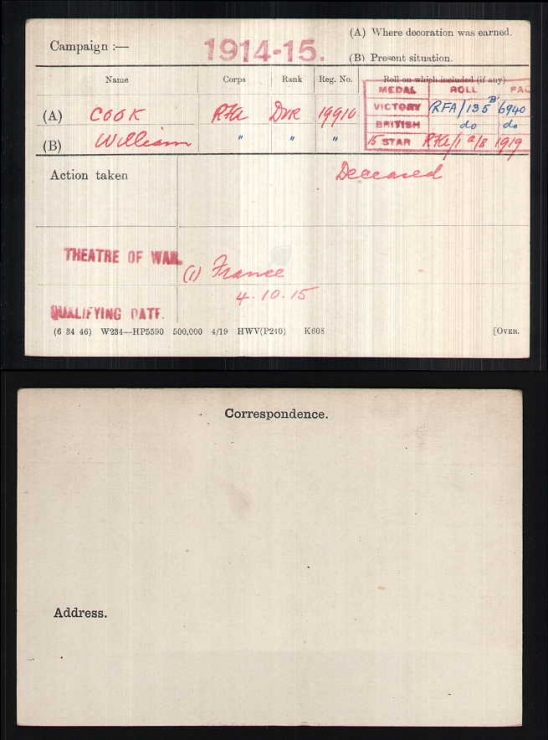 Campaign :— 1914-15. (A) Where decoration was earned.
(B) Present situation.
Name Corps Rank Reg. No. Roll on which included (if any)
MEDAL ROLL PAG
(A) COOK RFA Dvr 19910 VICTORY RFA/135B 6940
BRITISH do do
(B) William " " " 15 STAR RFA/1a/8 1919
Action taken Deceased
THEATRE OF WAR. (1) France
4.10.15
QUALIFYING DATE.
(6 34 46) W234—HP5590 500,000 4/19 HWV(P240) K608 [OVER.
Correspondence.
Address.